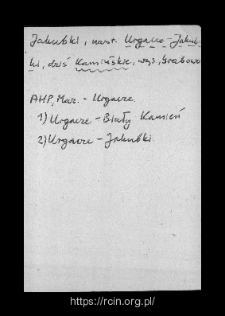 Jakubki, nast. Urgacze-Jakub
ki, dziś Kamińskie, wyś, Grabowo
AHP, Maz. - Urgacze.
1) Urgacze - Biały Kamień
2) Urgacze - Jakubki.
https://rcin.org.pl/